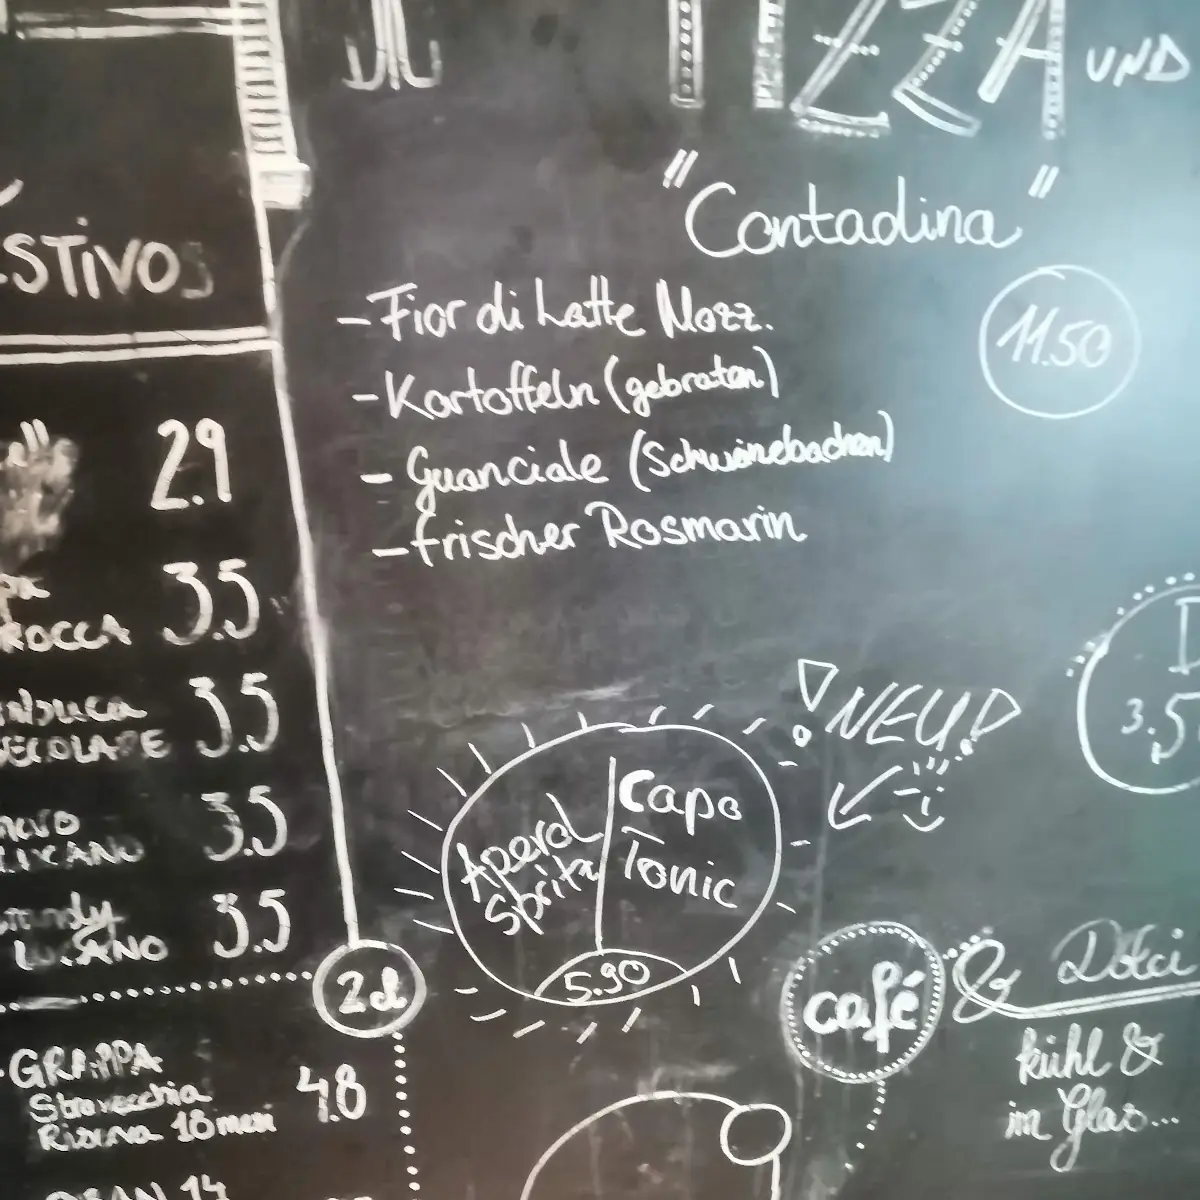 PIZZA UND
"Contadina"
11.50
- Fior di Latte Mozz.
- Kartoffeln (gebraten)
- Guanciale (Schweinebacken)
- frischer Rosmarin
STIVOS
2.9
3.5
ROCCA
3.5
3.5
LUCANO
3.5
LUCANO
2cl
GRAPPA
Stravecchia
Riserva 18 mesi
4.8
14
!NEU!
Aperol
Spritz
Capo
Tonic
5.90
3.5
café
& Dolci
kühl &
im Glas...